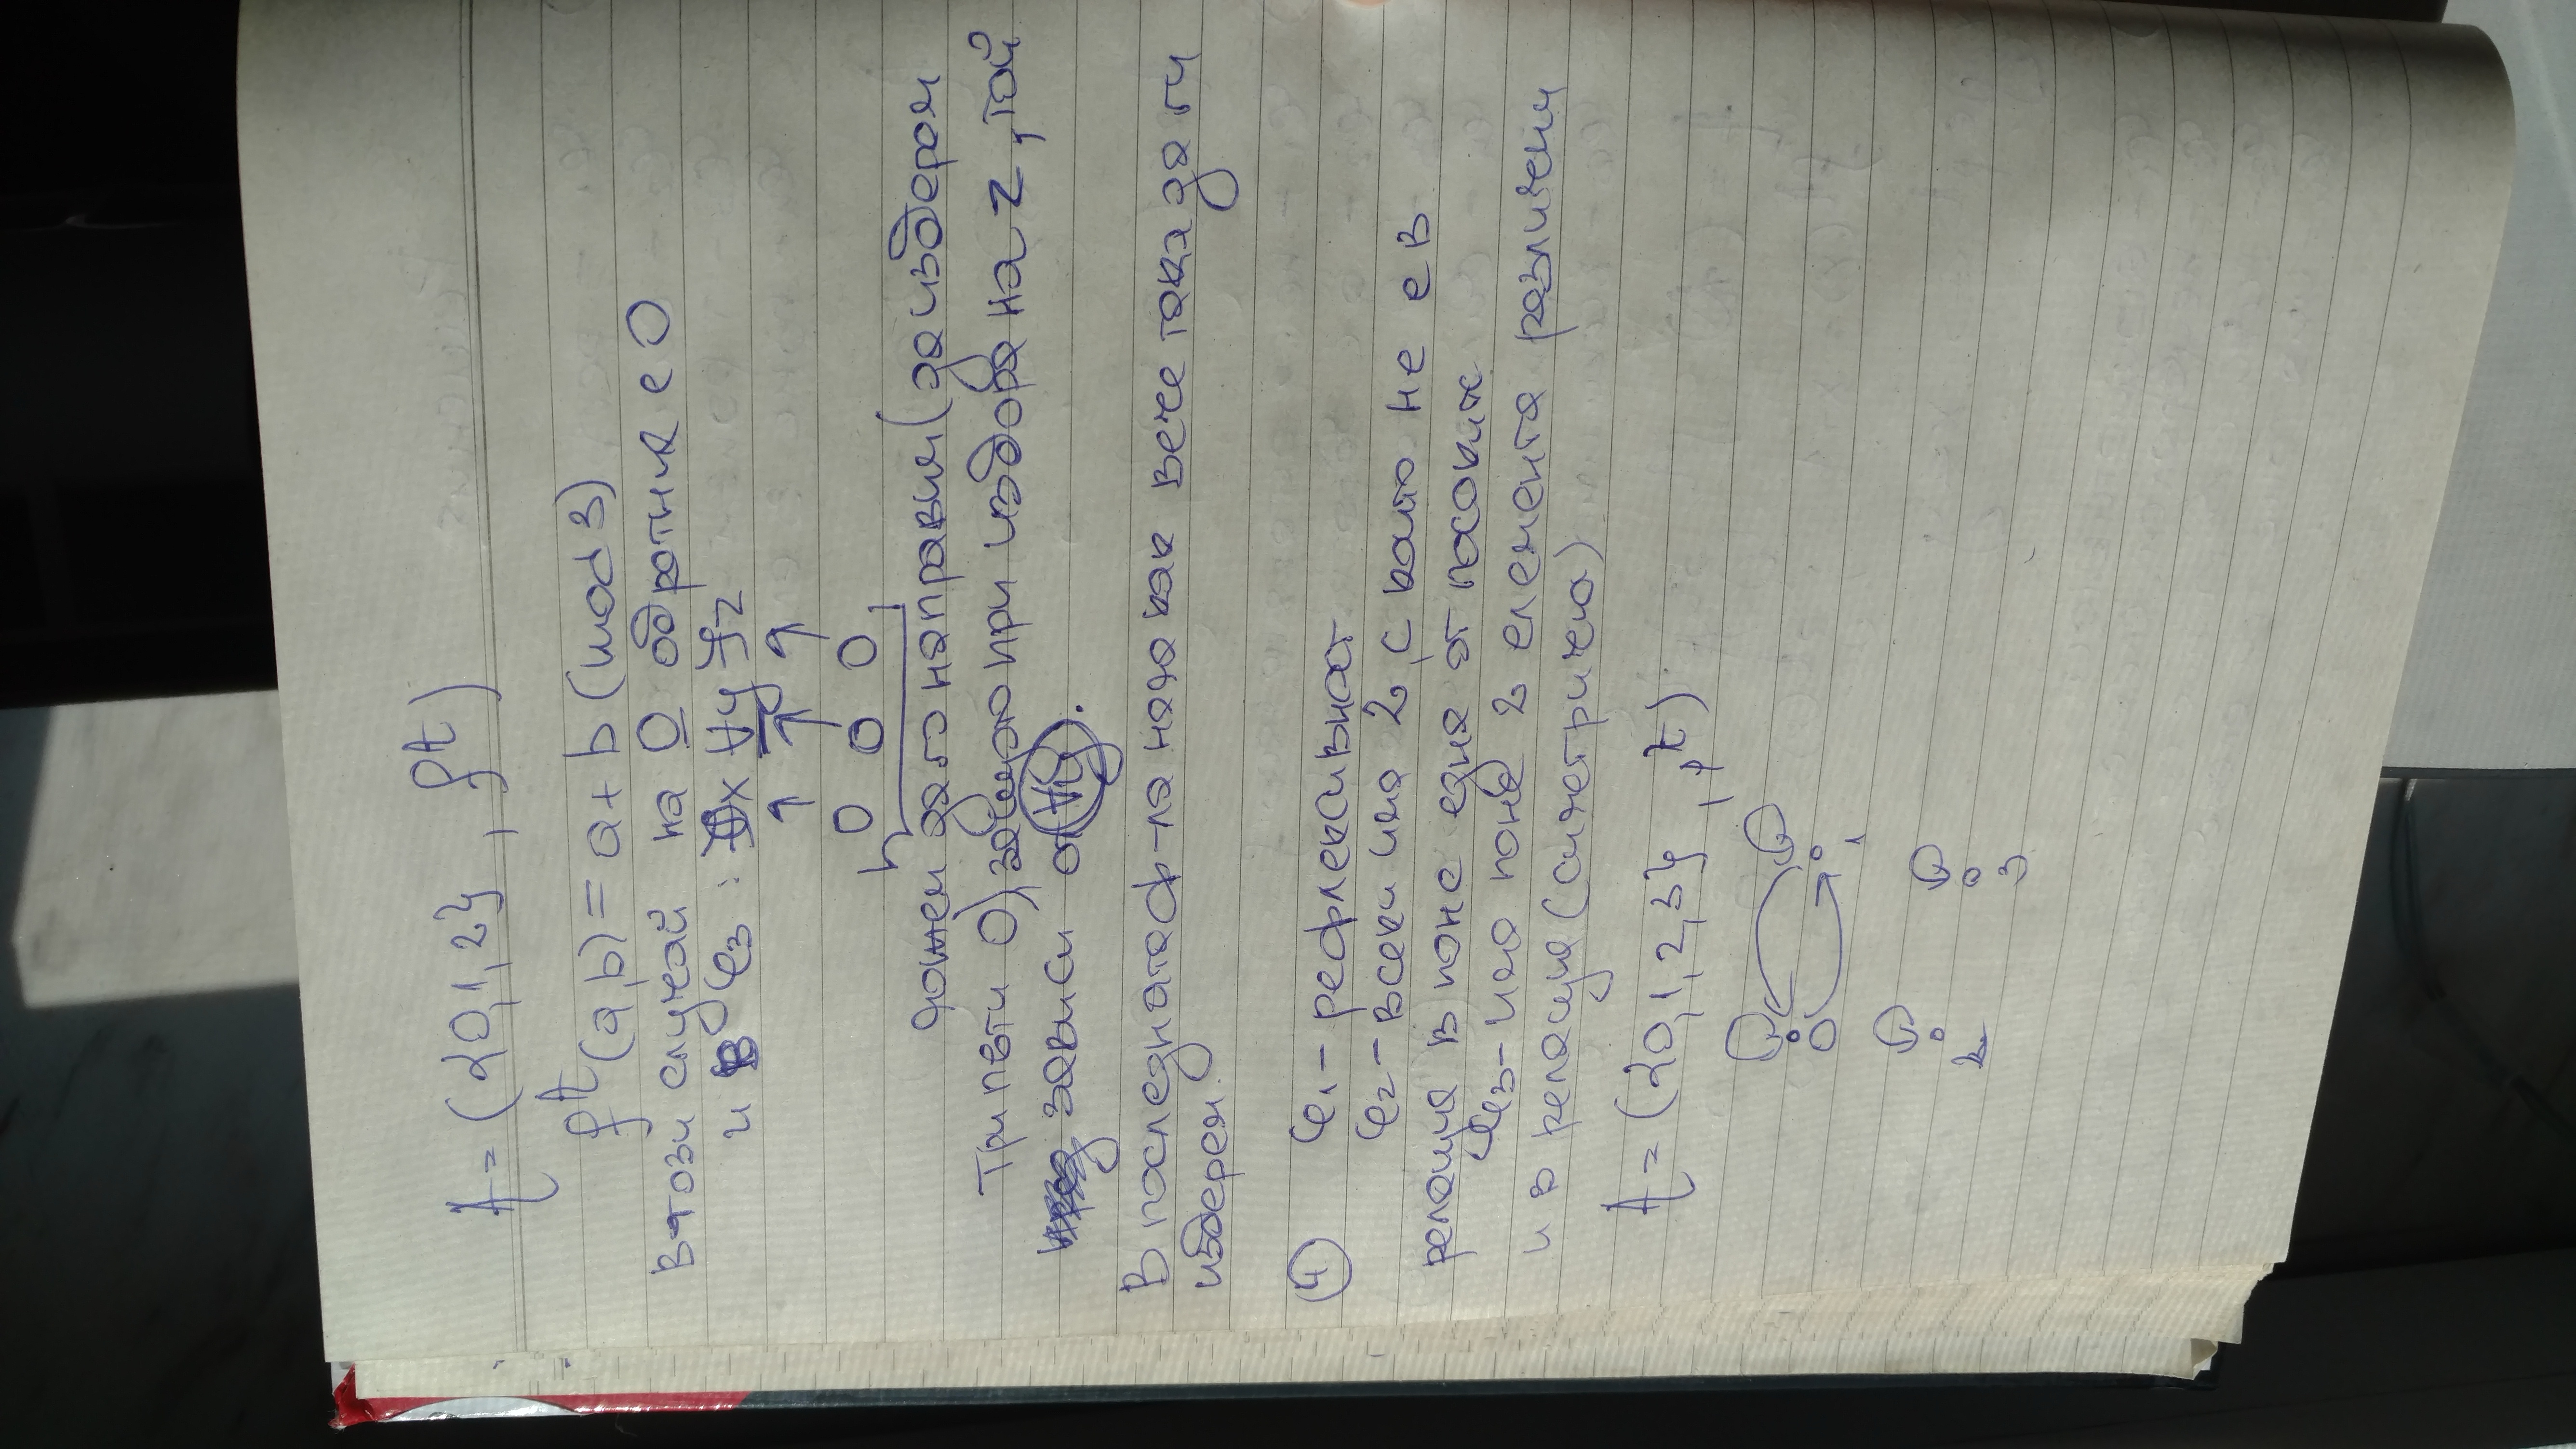 A = ({0,1,2}, f^A)
f^A(a,b) = a + b (mod 3)
В този случай на 0 обратния е 0
и в φ3 : ∃x ∀y ∃z
↑ ↑ ↑
0 0 0
можем да го направим (да изберем
три пъти 0), защото при избора на z, той
зависи от ∀y.
В последната ф-ла няма как вече така да ги
изберем.
④ φ1 - рефлексивност
φ2 - всеки има 2, с които не е в
релация в поне една от посоките
φ3 - има поне 2 елемента различни
и в релация (симетрична)
A = ({0,1,2,3}, p^A)
0 1
2 3